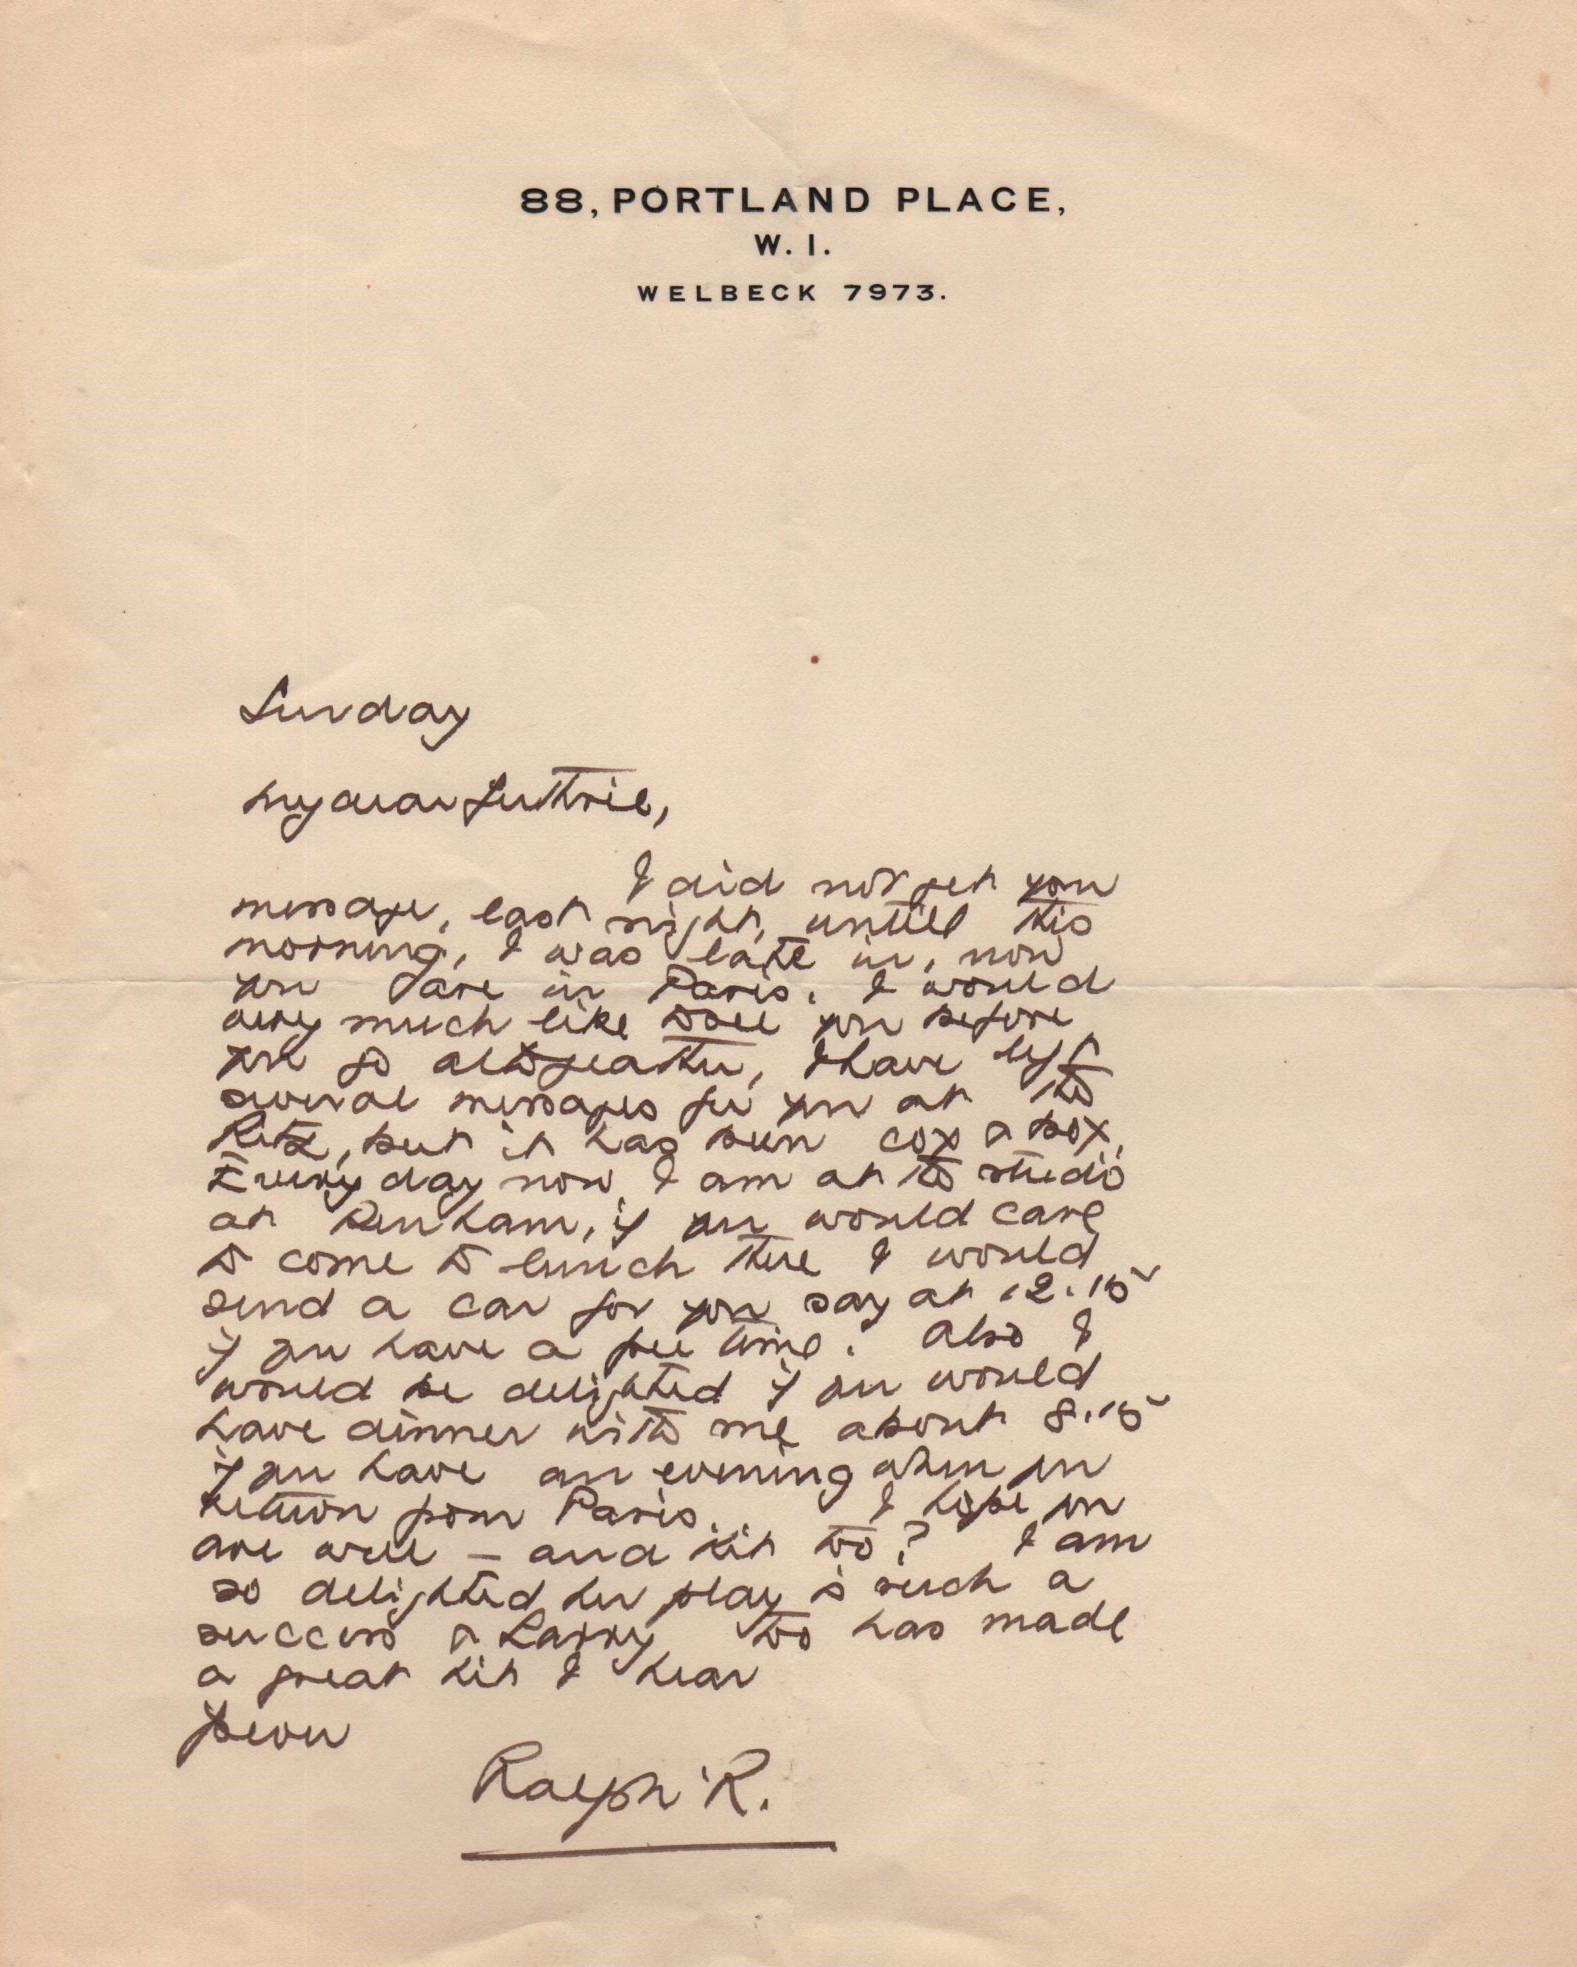 88, PORTLAND PLACE,
W. 1.
WELBECK 7973.
Sunday
My dear Guthrie,
I did not get your
message, last night, untill this
morning, I was late in, now
you are in Paris. I would
very much like to see you before
you go altogeather, I have left
several messages for you at the
Ritz, but it has been cox & box,
Every day now I am at the studio
at Denham, if you would care
to come to lunch there I would
send a car for you say at 12.15
if you have a free time. Also I
would be delighted if you would
have dinner with me about 8.15
if you have an evening when you
return from Paris. I hope you
are well – and Kit too? I am
so delighted her play is such a
success & Larry too has made
a great hit I hear
Ralph R.